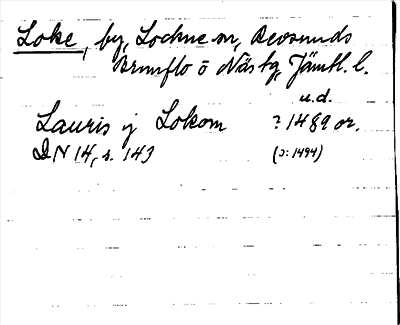 Loke, by, Lockne sn, Revsunds
Brunflo o Näs tg, Jämtl. l.
u.d.
Lauris j Lokom ? 1489 or.
DN 14, s. 143 (ɔ: 1494)